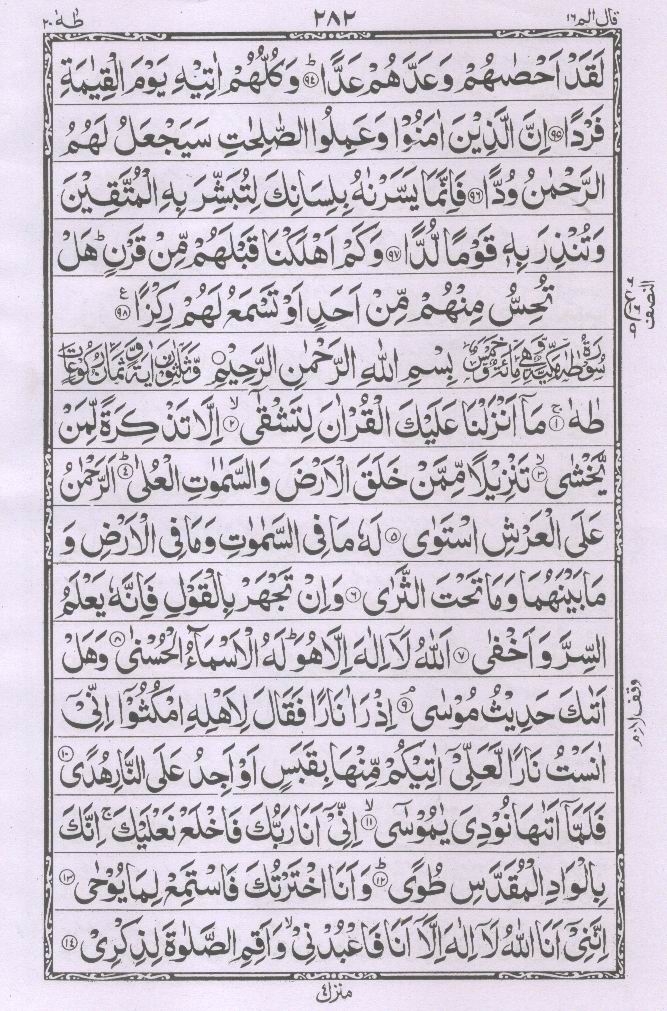 قال الم ١٦
٢٨٢
طٰهٰ ٢٠
لَقَدْ اَحْصٰىهُمْ وَعَدَّهُمْ عَدًّا ؕ﴿۹۴﴾ وَكُلُّهُمْ اٰتِيْهِ يَوْمَ الْقِيٰمَةِ
فَرْدًا ﴿۹۵﴾ اِنَّ الَّذِيْنَ اٰمَنُوْا وَعَمِلُوا الصّٰلِحٰتِ سَيَجْعَلُ لَهُمُ
الرَّحْمٰنُ وُدًّا ﴿۹۶﴾ فَاِنَّمَا يَسَّرْنٰهُ بِلِسَانِكَ لِتُبَشِّرَ بِهِ الْمُتَّقِيْنَ
وَتُنْذِرَ بِهٖ قَوْمًا لُّدًّا ﴿۹۷﴾ وَكَمْ اَهْلَكْنَا قَبْلَهُمْ مِّنْ قَرْنٍ ؕ هَلْ
تُحِسُّ مِنْهُمْ مِّنْ اَحَدٍ اَوْ تَسْمَعُ لَهُمْ رِكْزًا ﴿۹۸﴾ ع
النصف
بِسْمِ اللّٰهِ الرَّحْمٰنِ الرَّحِيْمِ
طٰهٰ ۚ﴿۱﴾ مَاۤ اَنْزَلْنَا عَلَيْكَ الْقُرْاٰنَ لِتَشْقٰۤى ۙ﴿۲﴾ اِلَّا تَذْكِرَةً لِّمَنْ
يَّخْشٰى ۙ﴿۳﴾ تَنْزِيْلًا مِّمَّنْ خَلَقَ الْاَرْضَ وَالسَّمٰوٰتِ الْعُلٰى ؕ﴿۴﴾ اَلرَّحْمٰنُ
عَلَى الْعَرْشِ اسْتَوٰى ﴿۵﴾ لَهٗ مَا فِى السَّمٰوٰتِ وَمَا فِى الْاَرْضِ وَ
مَا بَيْنَهُمَا وَمَا تَحْتَ الثَّرٰى ﴿۶﴾ وَاِنْ تَجْهَرْ بِالْقَوْلِ فَاِنَّهٗ يَعْلَمُ
السِّرَّ وَاَخْفٰى ﴿۷﴾ اَللّٰهُ لَاۤ اِلٰهَ اِلَّا هُوَ ؕ لَهُ الْاَسْمَآءُ الْحُسْنٰى ﴿۸﴾ وَهَلْ
اَتٰىكَ حَدِيْثُ مُوْسٰى ۘ﴿۹﴾ اِذْ رَاٰ نَارًا فَقَالَ لِاَهْلِهِ امْكُثُوْۤا اِنِّىْۤ
وقف لازم
اٰنَسْتُ نَارًا لَّعَلِّىْۤ اٰتِيْكُمْ مِّنْهَا بِقَبَسٍ اَوْ اَجِدُ عَلَى النَّارِ هُدًى ﴿۱۰﴾
فَلَمَّاۤ اَتٰىهَا نُوْدِىَ يٰمُوْسٰى ۙ﴿۱۱﴾ اِنِّىْۤ اَنَا رَبُّكَ فَاخْلَعْ نَعْلَيْكَ ۚ اِنَّكَ
بِالْوَادِ الْمُقَدَّسِ طُوًى ؕ﴿۱۲﴾ وَاَنَا اخْتَرْتُكَ فَاسْتَمِعْ لِمَا يُوْحٰى ﴿۱۳﴾
اِنَّنِىْۤ اَنَا اللّٰهُ لَاۤ اِلٰهَ اِلَّاۤ اَنَا فَاعْبُدْنِىْ ۙ وَاَقِمِ الصَّلٰوةَ لِذِكْرِىْ ﴿۱۴﴾
منزل ٤